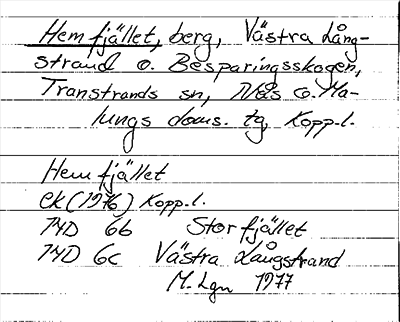 Hemfjället, berg, Västra Lång-
strand o. Besparingsskogen,
Transtrands sn, Nås o. Ma-
lungs doms. tg, Kopp. l.
Hemfjället
Ek (1976) Kopp. l.
14D 6b Storfjället
14D 6c Västra Långstrand
M. Lgn 1977